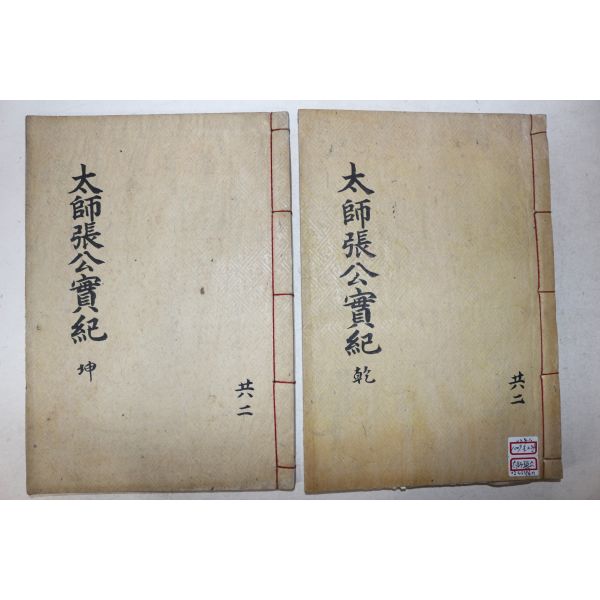 太師張公實紀 坤
共二
太師張公實紀 乾
共二